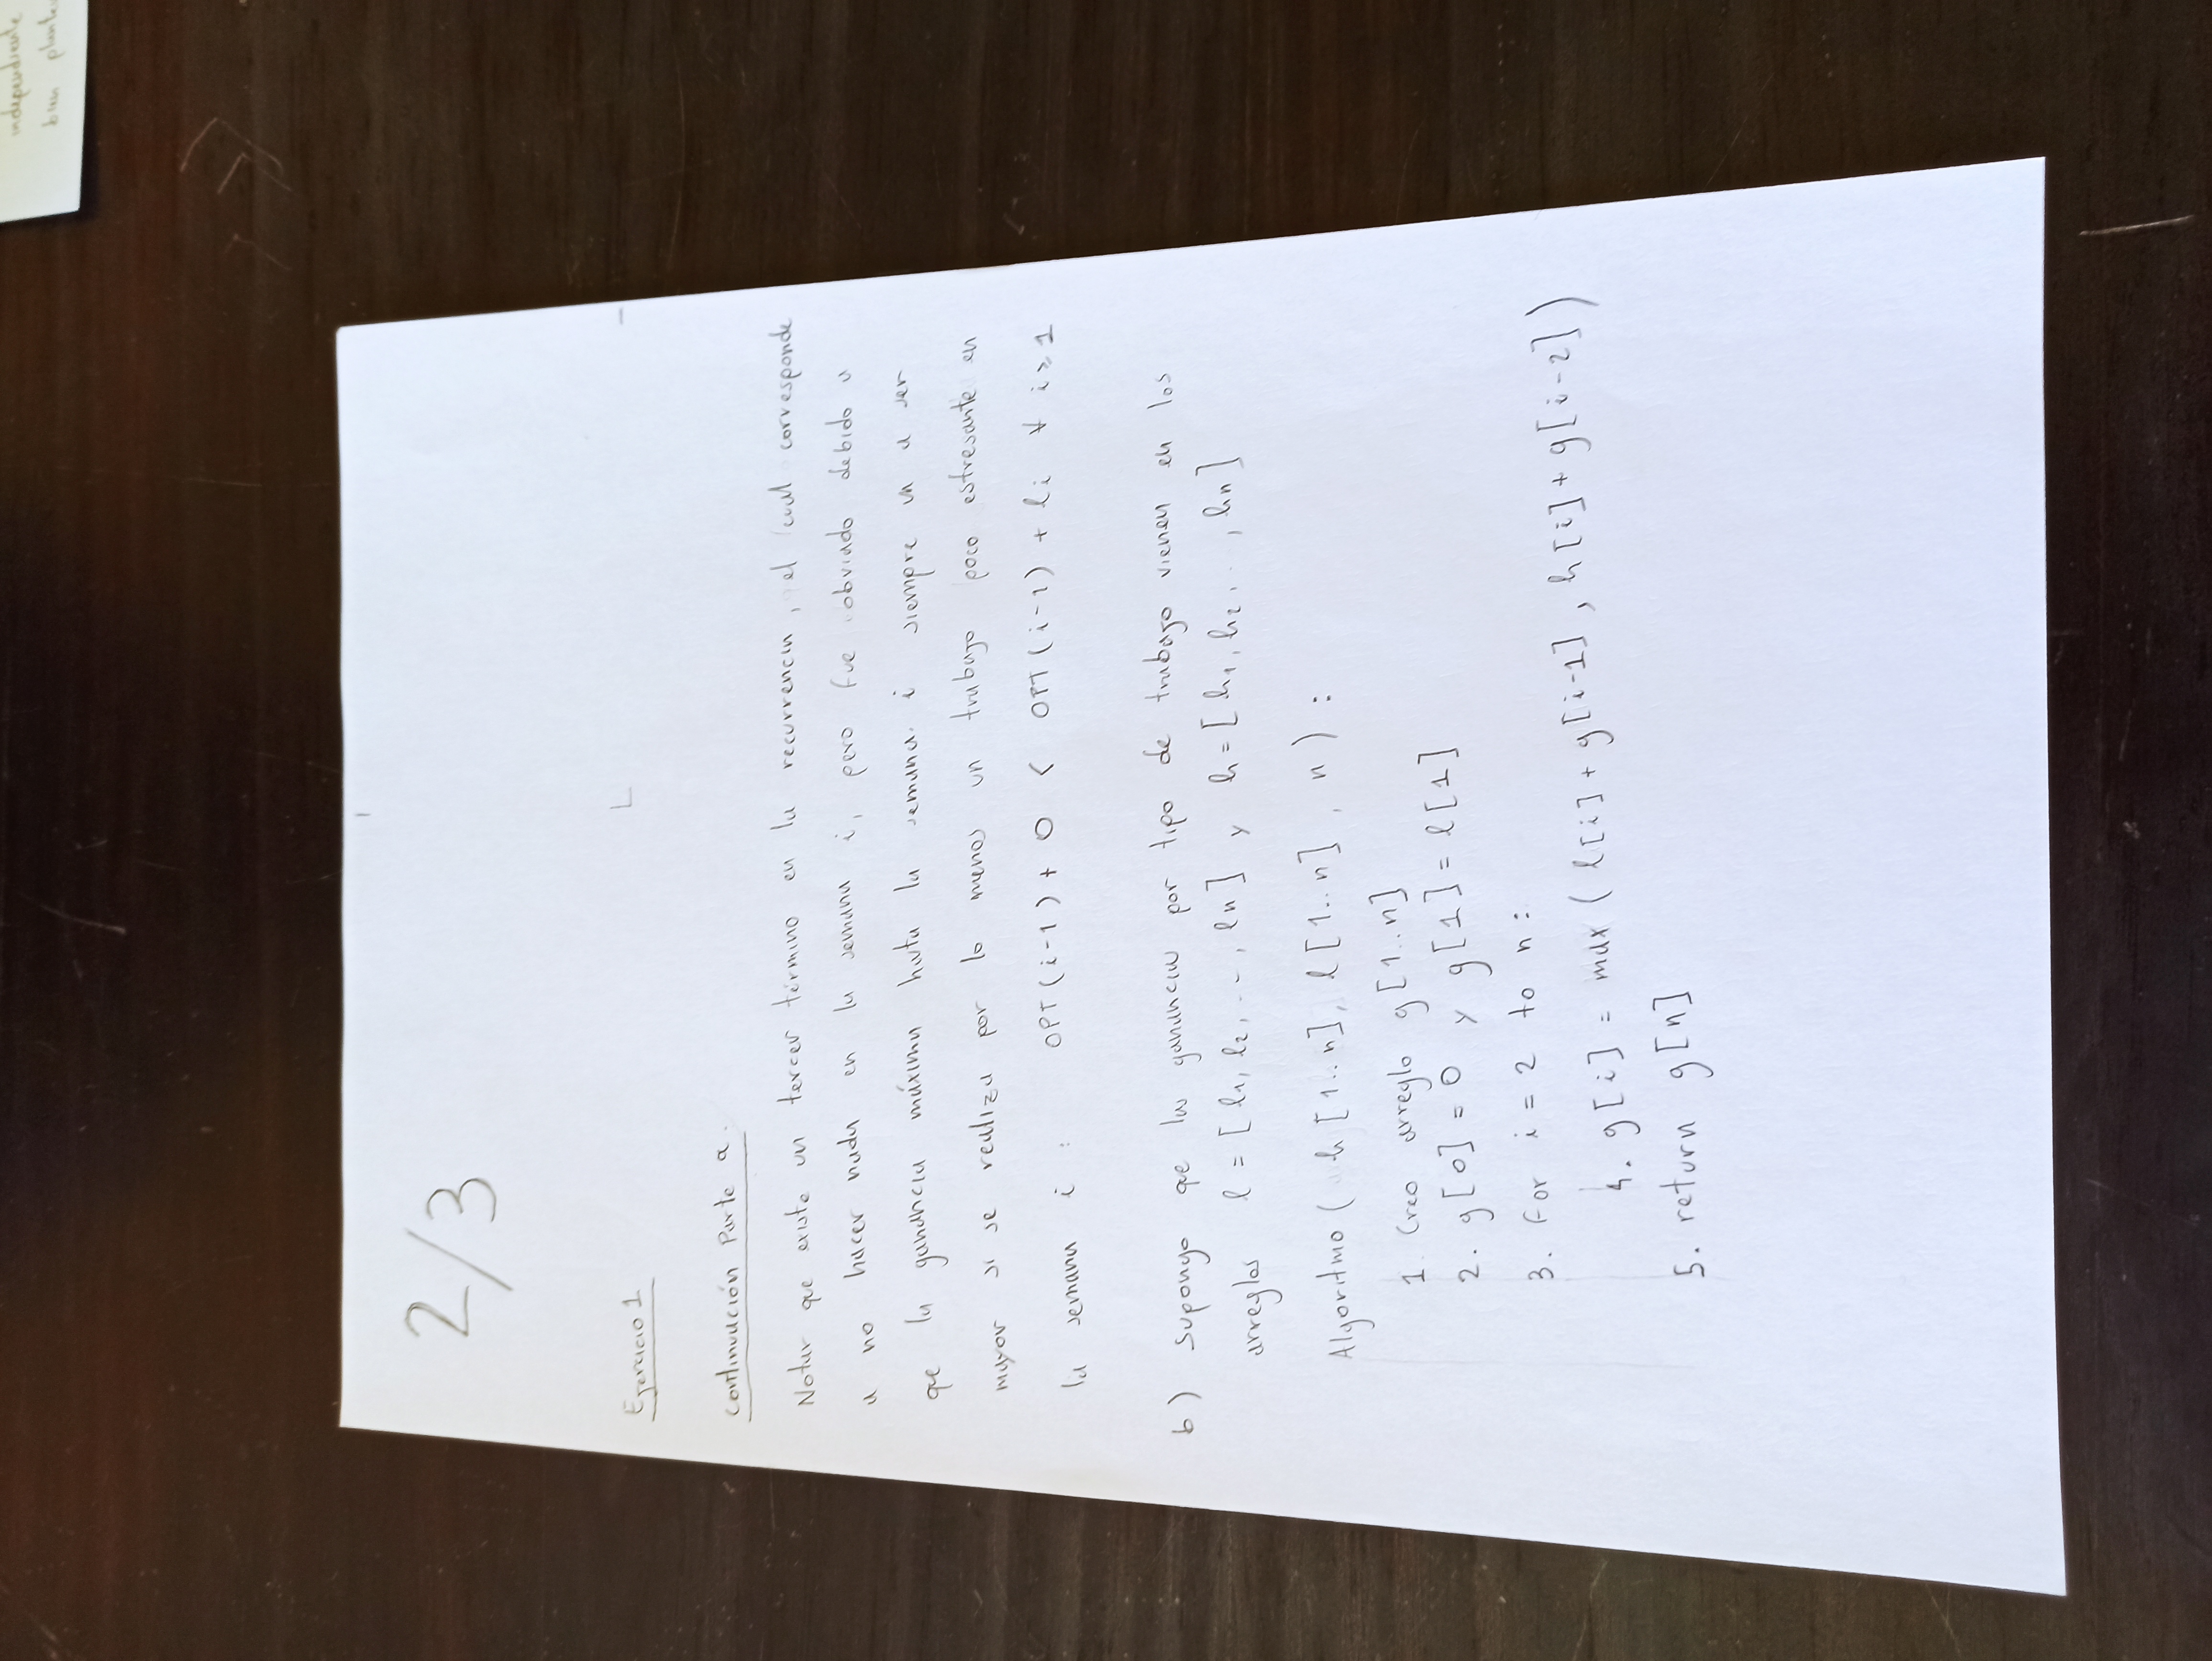 2/3
Ejercicio 1
Continuación Parte a.
Notar que existe un tercer término en la recurrencia, el cual corresponde
a no hacer nada en la semana i, pero fue obviado debido a
que la ganancia máxima hasta la semana i siempre va a ser
mayor si se realiza por lo menos un trabajo poco estresante en
la semana i : OPT(i-1) + 0 < OPT(i-1) + li ∀ i ≥ 1
b) Supongo que las ganancias por tipo de trabajo vienen en los
arreglos l = [l1, l2, .., ln] y h = [h1, h2, .., hn]
Algoritmo (h[1..n], l[1..n], n) :
1. Creo arreglo g[1..n]
2. g[0] = 0 y g[1] = l[1]
3. For i = 2 to n :
4. g[i] = max (l[i] + g[i-1], h[i] + g[i-2])
5. return g[n]
independiente
bien